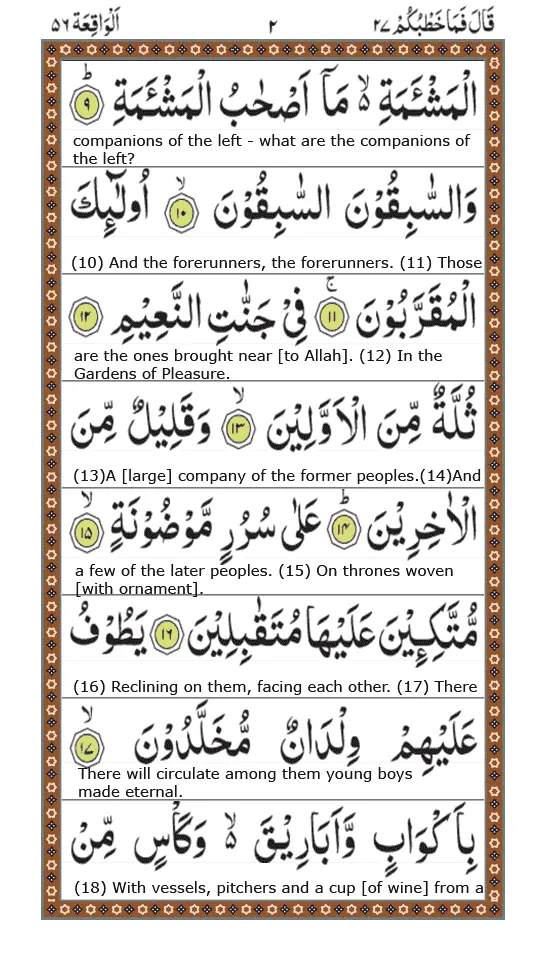 قَالَ فَمَا خَطْبُكُمْ ٢٧ ٢ اَلْوَاقِعَة ٥٦
الْمَشْـَٔمَةِ ۙ۬ مَاۤ اَصْحٰبُ الْمَشْـَٔمَةِ ؕ ٩
companions of the left - what are the companions of
the left?
وَالسّٰبِقُوْنَ السّٰبِقُوْنَ ۙ ١٠ اُولٰٓئِكَ
(10) And the forerunners, the forerunners. (11) Those
الْمُقَرَّبُوْنَ ۚ ١١ فِيْ جَنّٰتِ النَّعِيْمِ ١٢
are the ones brought near [to Allah]. (12) In the
Gardens of Pleasure.
ثُلَّةٌ مِّنَ الْاَوَّلِيْنَ ۙ ١٣ وَقَلِيْلٌ مِّنَ
(13)A [large] company of the former peoples.(14)And
الْاٰخِرِيْنَ ؕ ١٤ عَلٰى سُرُرٍ مَّوْضُوْنَةٍ ۙ ١٥
a few of the later peoples. (15) On thrones woven
[with ornament].
مُّتَّكِـِٕيْنَ عَلَيْهَا مُتَقٰبِلِيْنَ ١٦ يَطُوْفُ
(16) Reclining on them, facing each other. (17) There
عَلَيْهِمْ وِلْدَانٌ مُّخَلَّدُوْنَ ۙ ١٧
There will circulate among them young boys
made eternal.
بِاَكْوَابٍ وَّاَبَارِيْقَ ۙ۬ وَكَاْسٍ مِّنْ
(18) With vessels, pitchers and a cup [of wine] from a